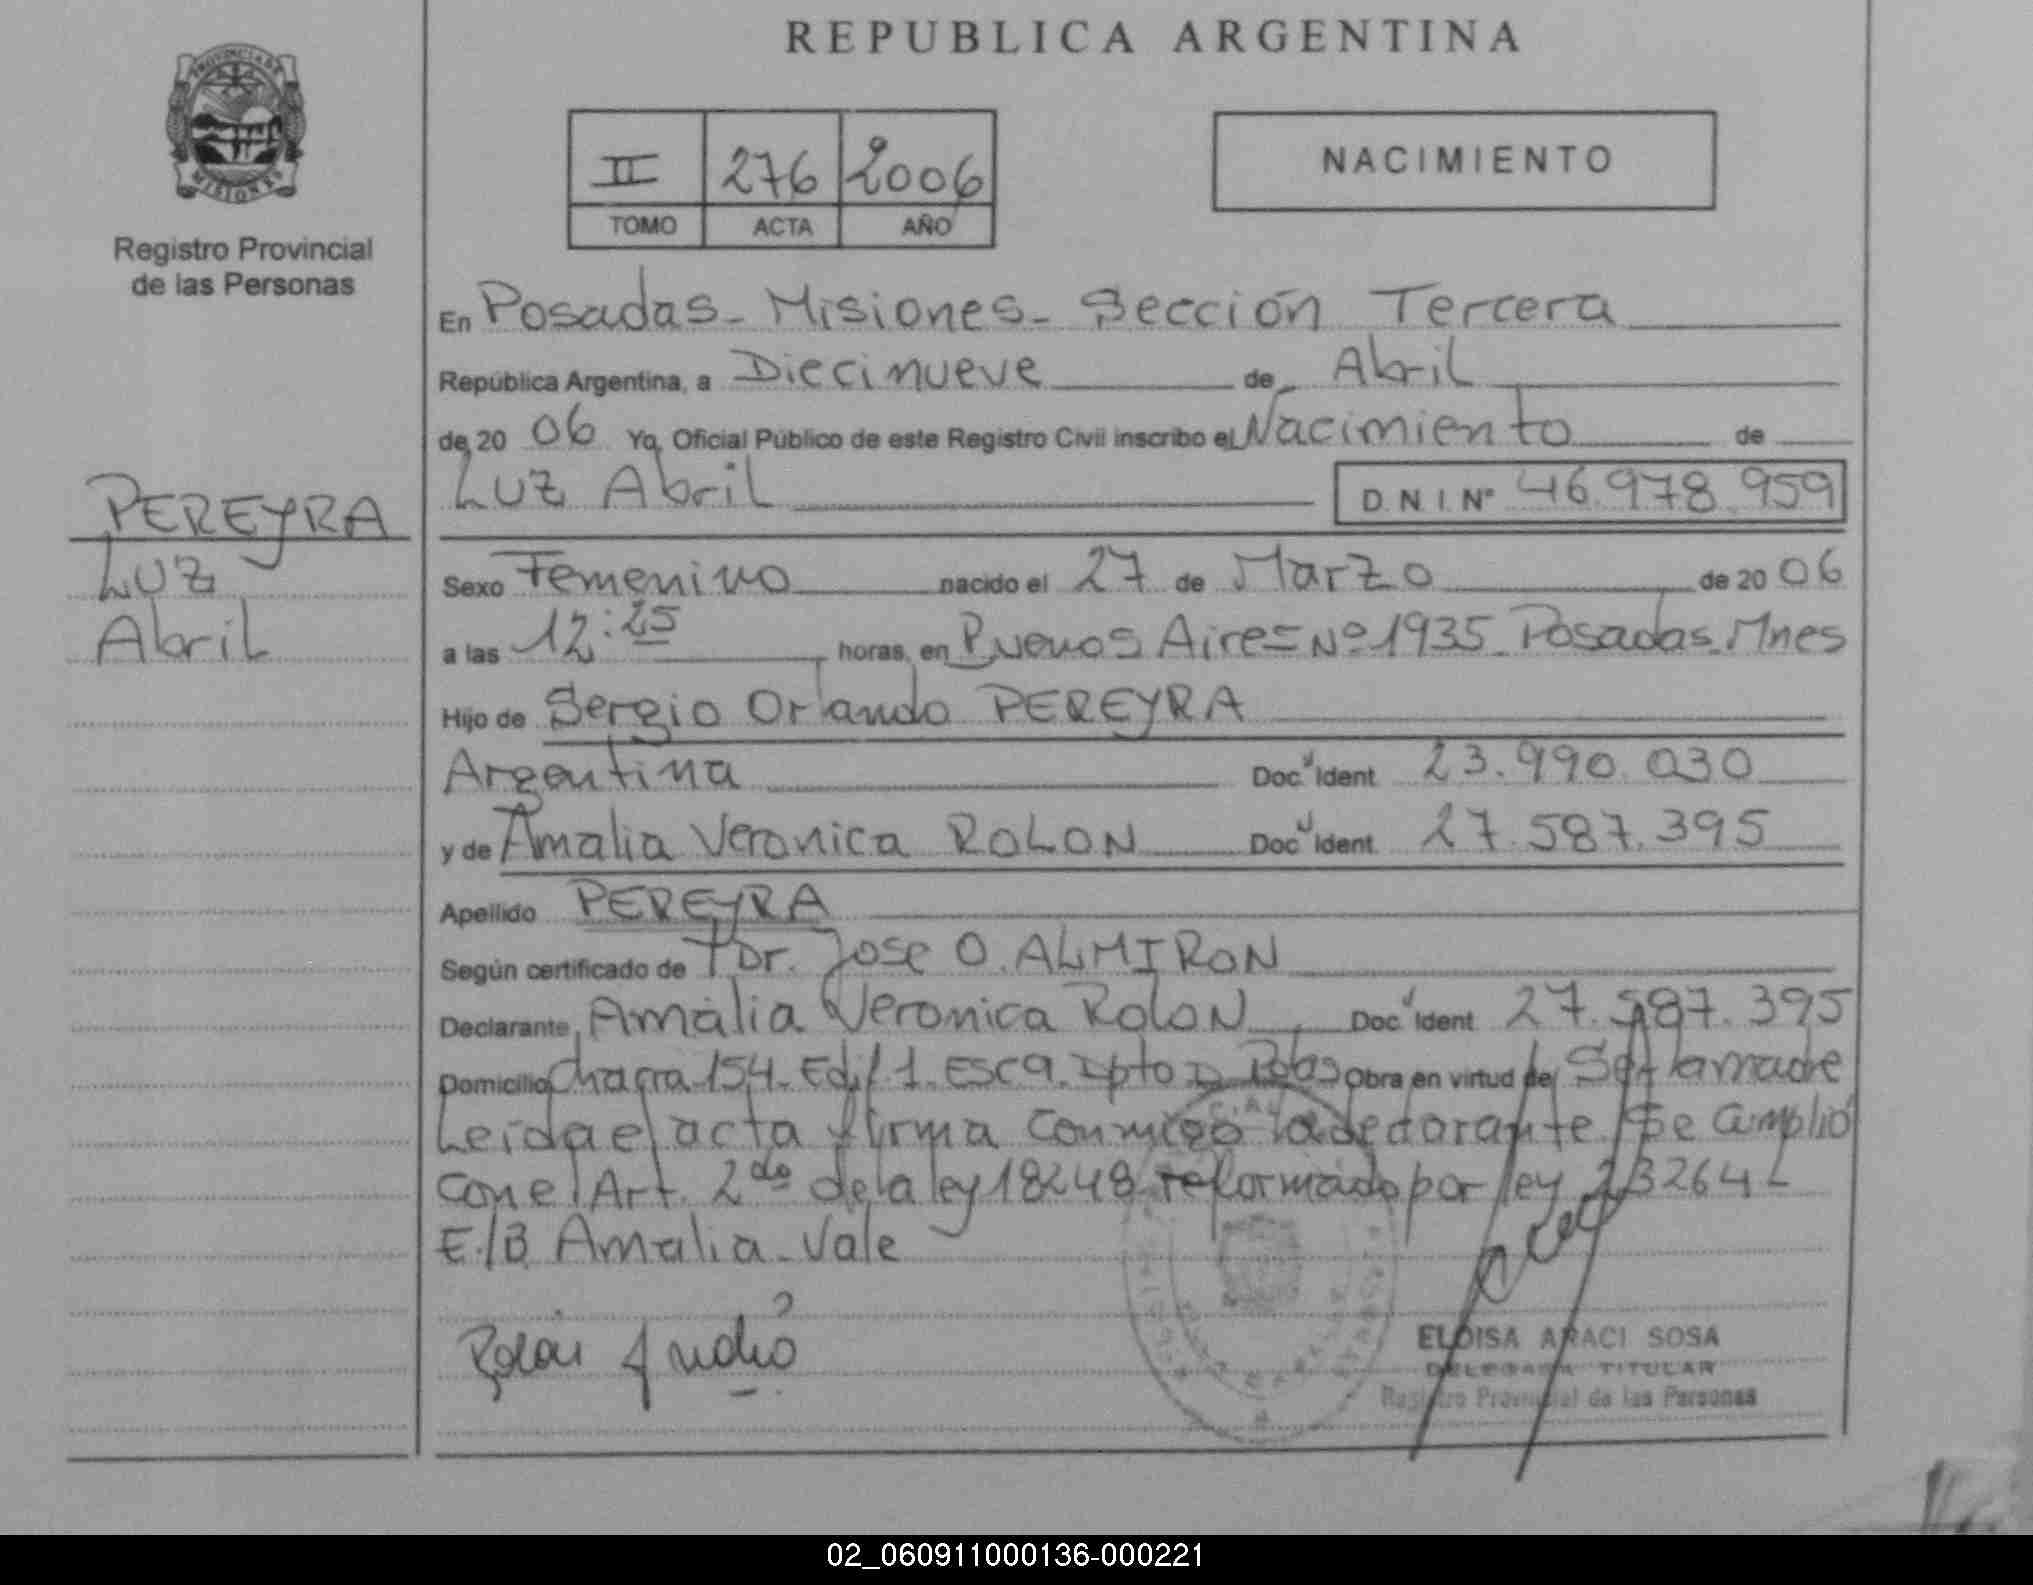 REPUBLICA ARGENTINA
PROVINCIA DE
MISIONES
Registro Provincial
de las Personas
II 276 2006
TOMO ACTA AÑO
NACIMIENTO
En Posadas - Misiones - Sección Tercera
República Argentina, a Diecinueve de Abril
de 20 06 Yo, Oficial Público de este Registro Civil inscribo el Nacimiento de
Luz Abril D.N.I. Nº 46.978.959
PEREYRA
Luz
Abril
Sexo Femenino nacido el 27 de Marzo de 20 06
a las 12:25 horas, en Buenos Aires Nº 1935 Posadas Mnes
Hijo de Sergio Orlando PEREYRA
Argentina Doc Ident 23.990.030
y de Amalia Veronica ROLON Doc Ident. 27.587.395
Apellido PEREYRA
Según certificado de Dr. Jose O. ALMIRON
Declarante Amalia Veronica ROLON Doc Ident 27.587.395
Domicilio Chacra 154 - Edif 1. Esc 9. Dpto D Pdas Obra en virtud de Ser la madre
Leída el acta firma conmigo la declarante. Se cumplió
con el Art. 2do de la ley 18248 reformado por ley 23264
E/B Amalia - Vale
Rolón
ELOISA ARACI SOSA
DELEGADA TITULAR
Registro Provincial de las Personas
02_060911000136-000221